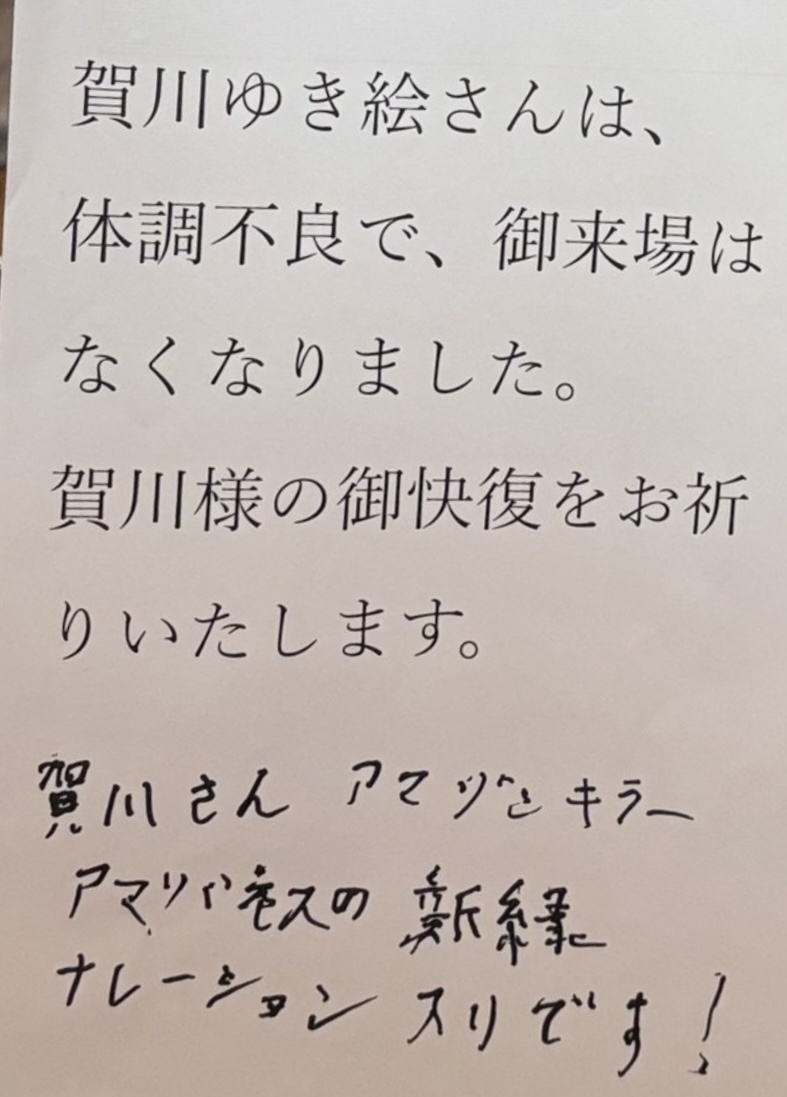 賀川ゆき絵さんは、
体調不良で、御来場は
なくなりました。
賀川様の御快復をお祈
りいたします。
賀川さん アマゾンキラー
アマゾネスの 新録
ナレーション スリです!